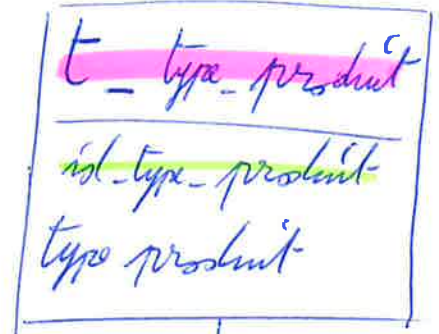 t_type_produit
id_type_produit
type produit